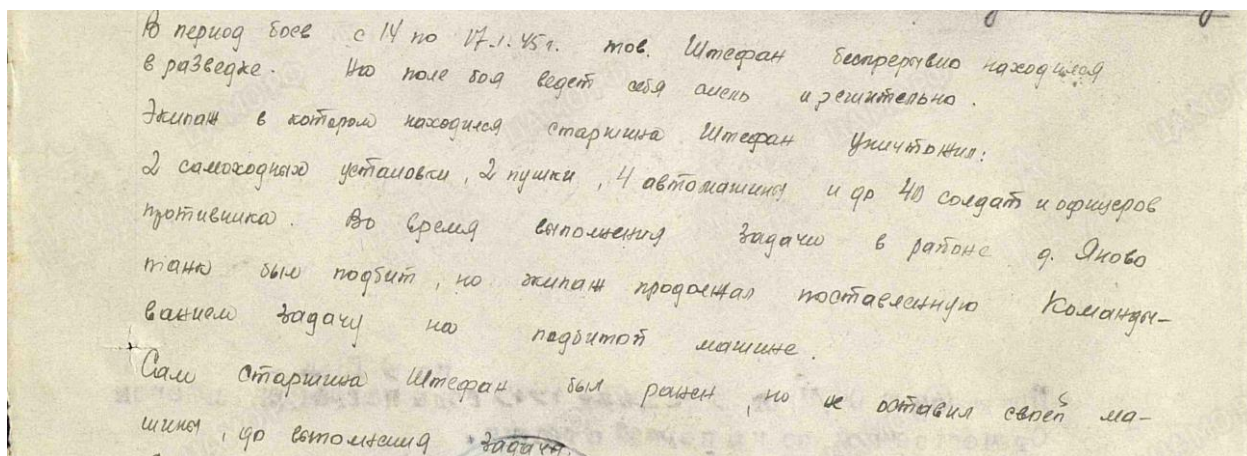 В период боев с 14 по 17.1.45г. тов. Штефан беспрерывно находился
в разведке. На поле боя ведет себя смело и решительно.
Экипаж в котором находился старшина Штефан уничтожил:
2 самоходных установки, 2 пушки, 4 автомашины и до 40 солдат и офицеров
противника. Во время выполнения задачи в районе д. Яново
танк был подбит, но экипаж продолжал поставленную Команды-
ванием задачу на подбитой машине.
Сам Старшина Штефан был ранен, но не оставил своей ма-
шины, до выполнения задачи.